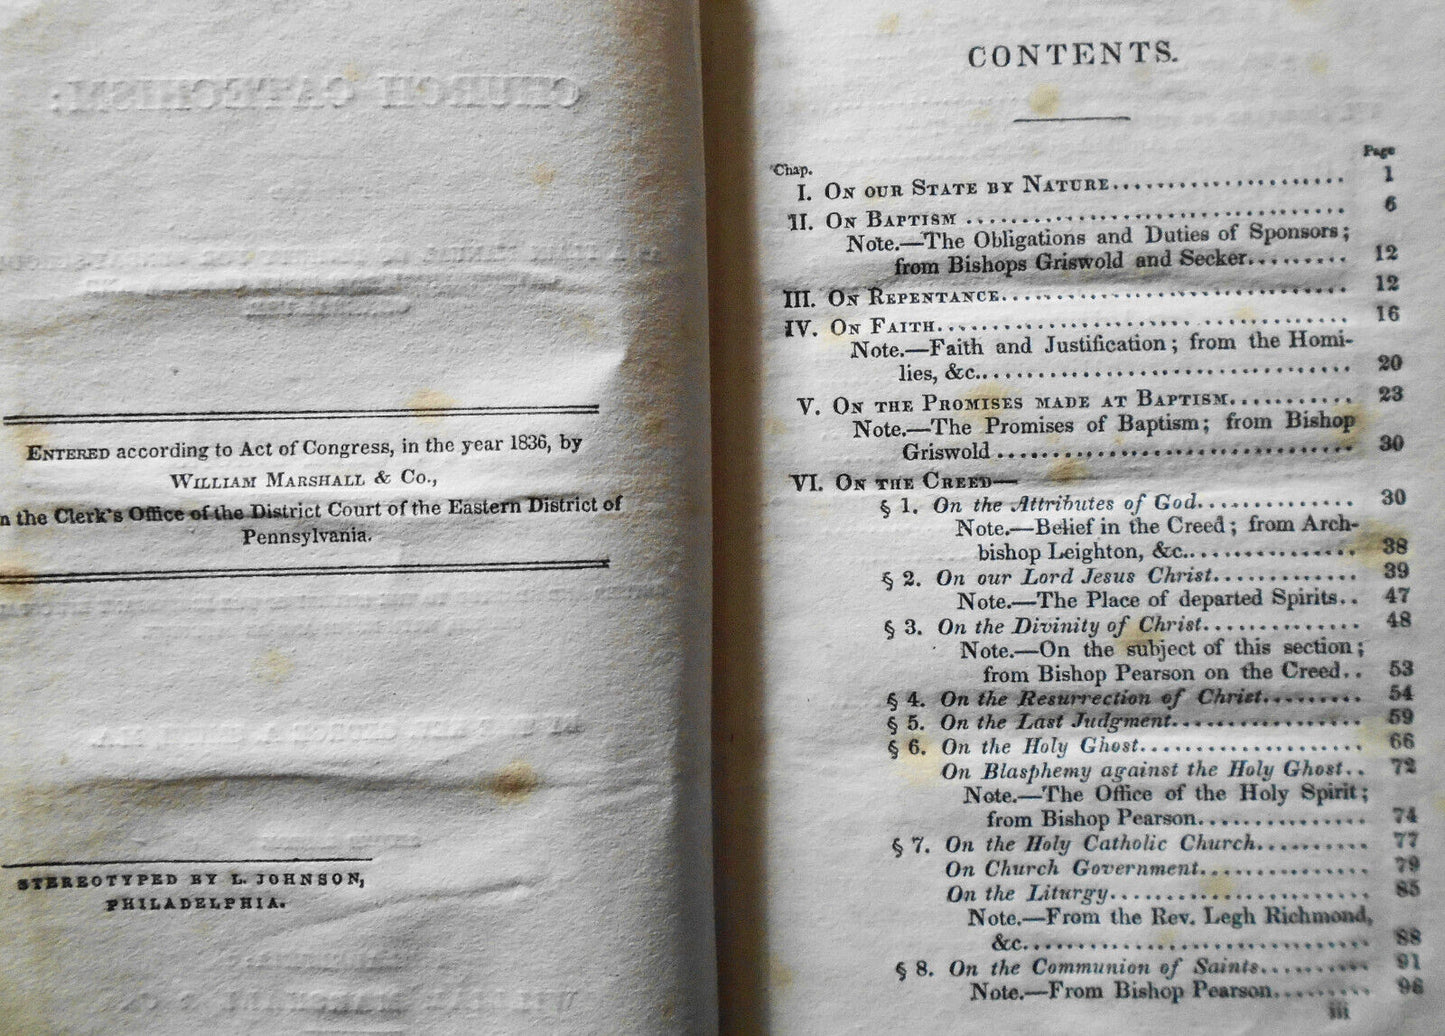 ENTERED according to Act of Congress, in the year 1836, by
WILLIAM MARSHALL & Co.,
n the Clerk's Office of the District Court of the Eastern District of
Pennsylvania.
STEREOTYPED BY L. JOHNSON,
PHILADELPHIA.
CONTENTS.
Chap. Page
I. ON OUR STATE BY NATURE 1
II. ON BAPTISM 6
Note.—The Obligations and Duties of Sponsors;
from Bishops Griswold and Secker 12
III. ON REPENTANCE 12
IV. ON FAITH 16
Note.—Faith and Justification; from the Homi-
lies, &c. 20
V. ON THE PROMISES MADE AT BAPTISM 23
Note.—The Promises of Baptism; from Bishop
Griswold 30
VI. ON THE CREED—
§ 1. On the Attributes of God 30
Note.—Belief in the Creed; from Arch-
bishop Leighton, &c. 38
§ 2. On our Lord Jesus Christ 39
Note.—The Place of departed Spirits 47
§ 3. On the Divinity of Christ 48
Note.—On the subject of this section;
from Bishop Pearson on the Creed 53
§ 4. On the Resurrection of Christ 54
§ 5. On the Last Judgment 59
§ 6. On the Holy Ghost 66
On Blasphemy against the Holy Ghost 72
Note.—The Office of the Holy Spirit;
from Bishop Pearson 74
§ 7. On the Holy Catholic Church 77
On Church Government 79
On the Liturgy 85
Note.—From the Rev. Legh Richmond,
&c. 88
§ 8. On the Communion of Saints 91
Note.—From Bishop Pearson 96
iii